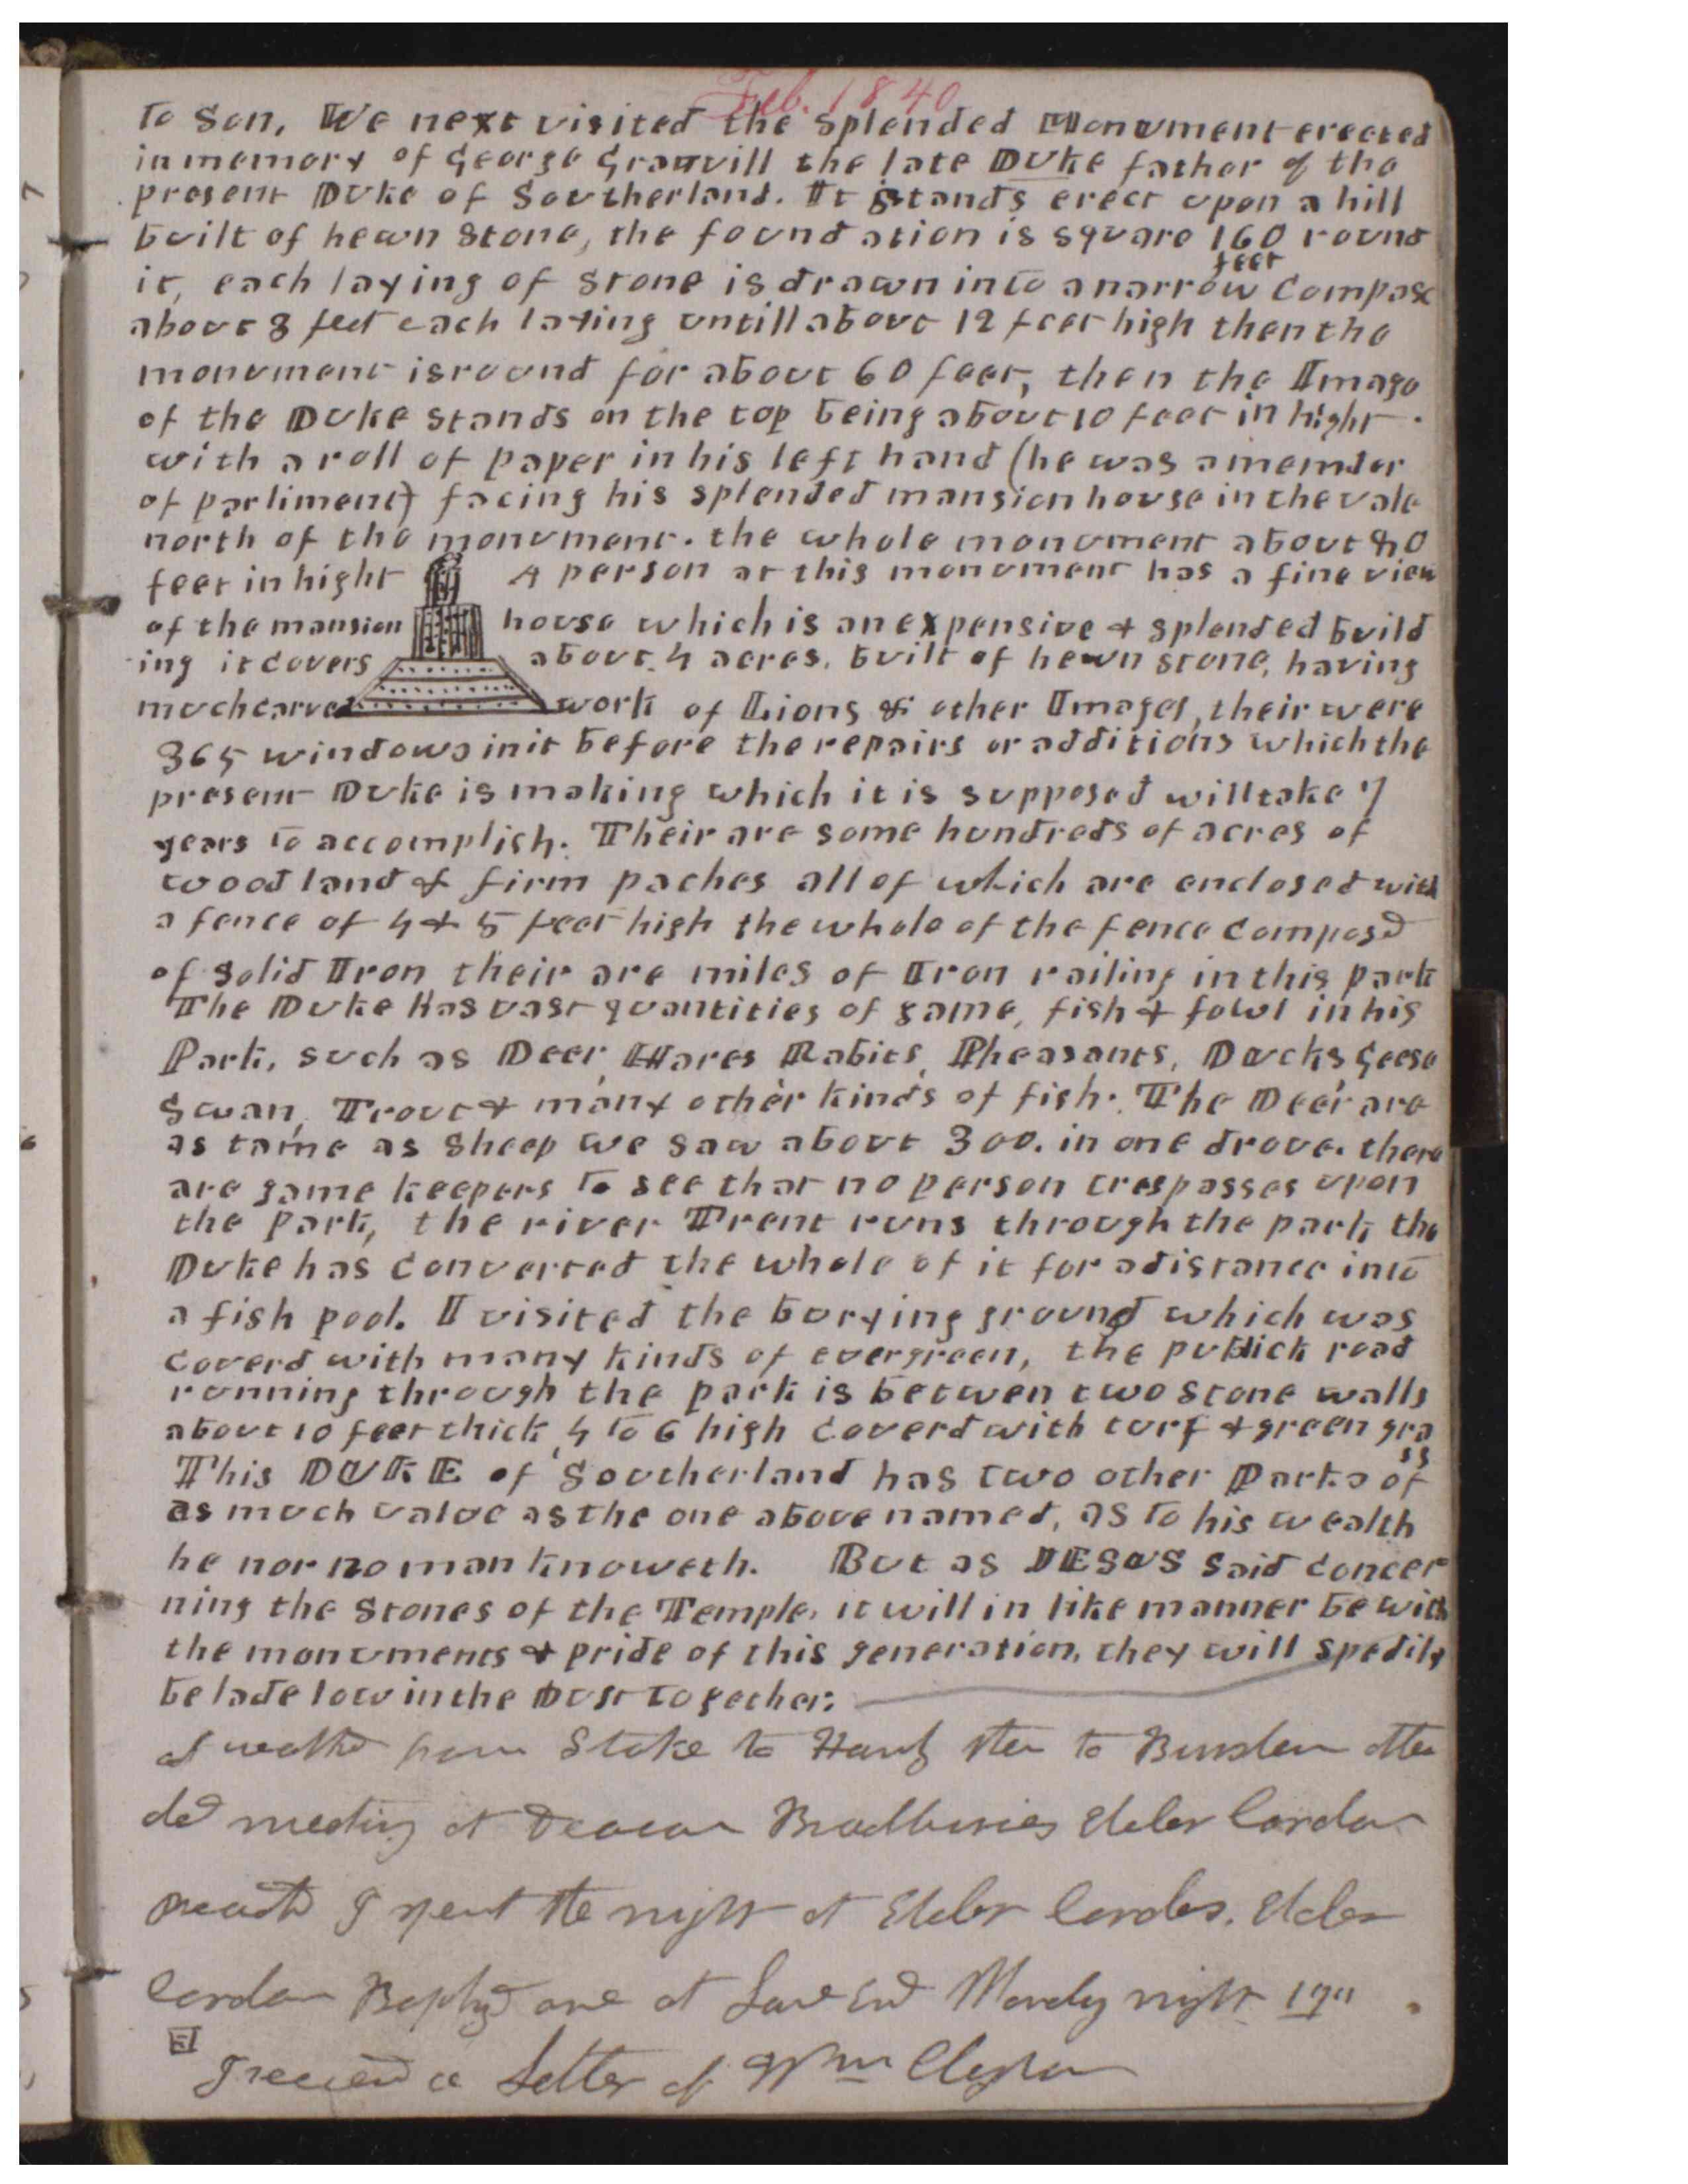 Feb. 1840
to Son, We next visited the Splended Monument erected
in memory of George Granvill the late DUke father of the
present DUke of Southerland. It stands erect upon a hill
built of hewn Stone, the foundation is square 160 round
feet
it, each laying of Stone is drawn into a narrow Compass
about 3 feet each laying untill about 12 feet high then the
monument is round for about 60 feet, then the Image
of the DUke stands on the top being about 10 feet in hight.
with a roll of paper in his left hand (he was a member
of parliment) facing his splended mansion house in the vale
north of the monument. the whole monument about 80
feet in hight A person at this monument has a fine view
of the mansion house which is an expensive & splended build
ing it covers about 4 acres. built of hewn stone, having
much carved work of Lions & other Images, their were
365 windows in it before the repairs or additions which the
present DUke is making which it is supposed will take 7
years to accomplish. Their are some hundreds of acres of
wood land & firm paches all of which are enclosed with
a fence of 4 & 5 feet high the whole of the fence Composd
of solid Iron their are miles of Iron railing in this park
The DUke Has vast quantities of game, fish & fowl in his
Park, such as Deer, Hares Rabits, Pheasants, Ducks, Geese
Swan, Trout & many other kinds of fish. The Deer are
as tame as Sheep we saw about 300. in one drove. there
are game keepers to see that no person trespasses upon
the park, the river Trent runs through the park, the
DUke has Converted the whole of it for a distance into
a fish pool. I visited the burying ground which was
Coverd with many kinds of evergreen, the publick road
running through the park is betwen two Stone walls
about 10 feet thick, 4 to 6 high Coverd with turf & green gra
ss
This DUKE of Southerland has two other Parks of
as much value as the one above named, as to his wealth
he nor no man knoweth. But as JESUS Said Concer
ning the Stones of the Temple, it will in like manner be with
the monuments & pride of this generation, they will spedily
be lade low in the Dust together.
I walked from Stoke to Hanly then to Burslem atten
ded meeting at Deacon Bradburies Elder Cordon
preachd I spent the night at Elder Cordons. Elder
Cordon Baptizd one at Lane End Monday night 17th
I received a Letter of Wm Clayton